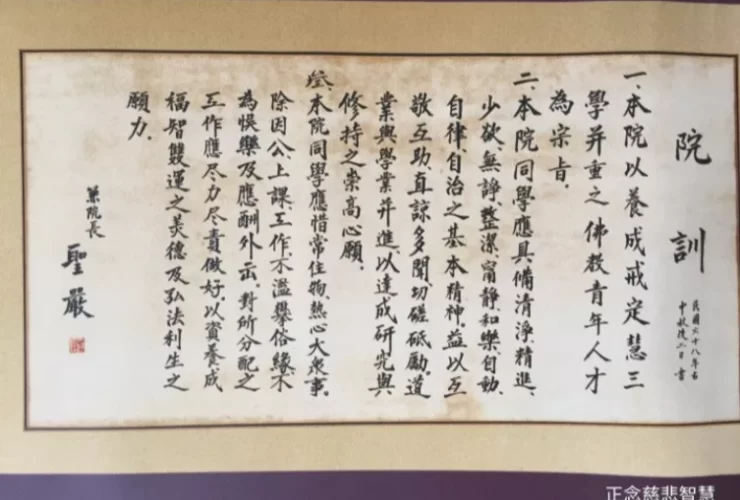 院訓
民國六十八年古
中秋後二日書
一、本院以養成戒定慧三
學并重之佛教青年人才
為宗旨。
二、本院同學應具備清淨、精進、
少欲、無諍、整潔、甯靜、和樂、自動、
自律、自治之基本精神。益以互
敬互助、直諒多聞、切磋砥勵。道
業與學業并進、以達成研究與
修持之崇高心願。
叁、本院同學應惜常住物、熱心大衆事。
除因公、上課工作、不濫攀俗緣、不
為娛樂及應酬外出。對所分配之
工作應尽力尽責做好。以資養成
福智雙運之美德及弘法利生之
願力。
兼院長
聖嚴
正念慈悲智慧